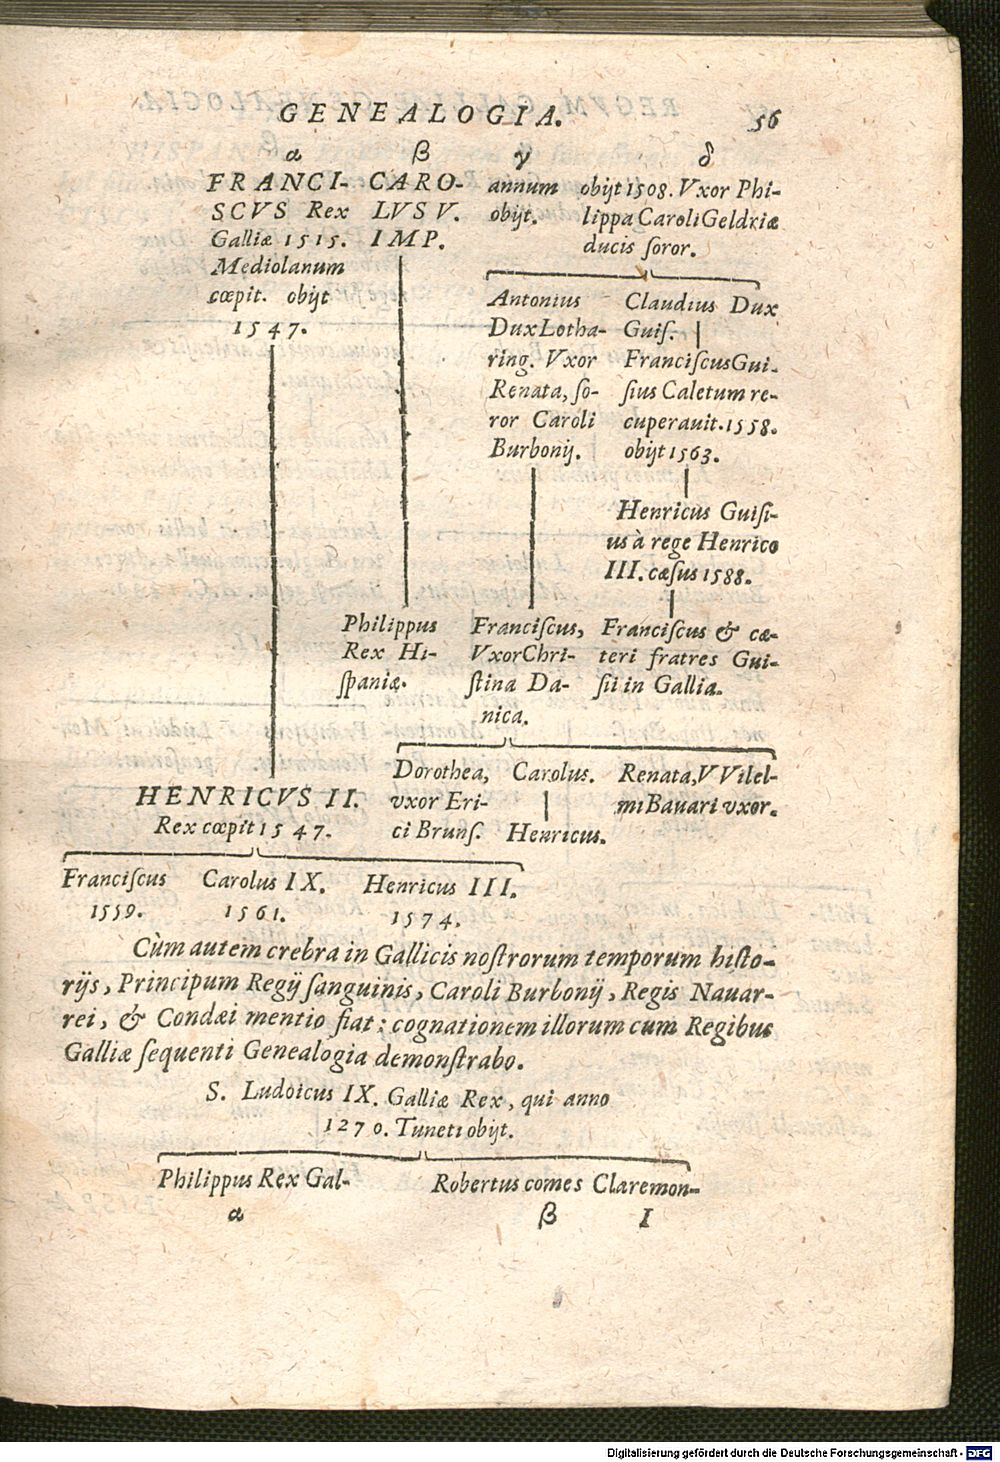 GENEALOGIA. 56
α β γ δ
FRANCI-
SCVS Rex
Galliæ 1515.
Mediolanum
cœpit. obijt
1547.
CARO-
LVS V.
IMP.
annum
obijt.
obijt 1508. Vxor Phi-
lippa Caroli Geldriæ
ducis ſoror.
Antonius
Dux Lotha-
ring. Vxor
Renata, ſo-
ror Caroli
Burbonij.
Claudius Dux
Guiſ.
Franciſcus Gui-
ſius Caletum re-
cuperauit. 1558.
obijt 1563.
Henricus Guiſi-
us à rege Henrico
III. cæſus 1588.
Philippus
Rex Hi-
ſpaniæ.
Franciſcus,
Vxor Chri-
ſtina Da-
nica.
Franciſcus & cæ-
teri fratres Gui-
ſii in Gallia.
Dorothea,
vxor Eri-
ci Brunſ.
Carolus.
Henricus.
Renata, VVilel-
mi Bauari vxor.
HENRICVS II.
Rex cœpit 1547.
Franciſcus
1559.
Carolus IX.
1561.
Henricus III.
1574.
Cùm autem crebra in Gallicis noſtrorum temporum hiſto-
rijs, Principum Regij ſanguinis, Caroli Burbonij, Regis Nauar-
rei, & Condæi mentio fiat: cognationem illorum cum Regibus
Galliæ ſequenti Genealogia demonſtrabo.
S. Ludoicus IX. Galliæ Rex, qui anno
1270. Tuneti obijt.
Philippus Rex Gal-
α
Robertus comes Claremon-
β I
Digitalisierung gefördert durch die Deutsche Forschungsgemeinschaft - DFG